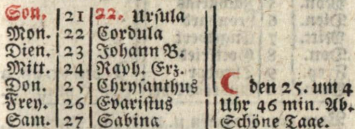 Son. 21 22. Ursula
Mon. 22 Cordula
Dien. 23 Johann B.
Mitt. 24 Raph. Erz.
Don. 25 Chrysanthus ☾ den 25. um 4
Frey. 26 Evaristus Uhr 46 min. Ab.
Sam. 27 Sabina Schöne Tage.